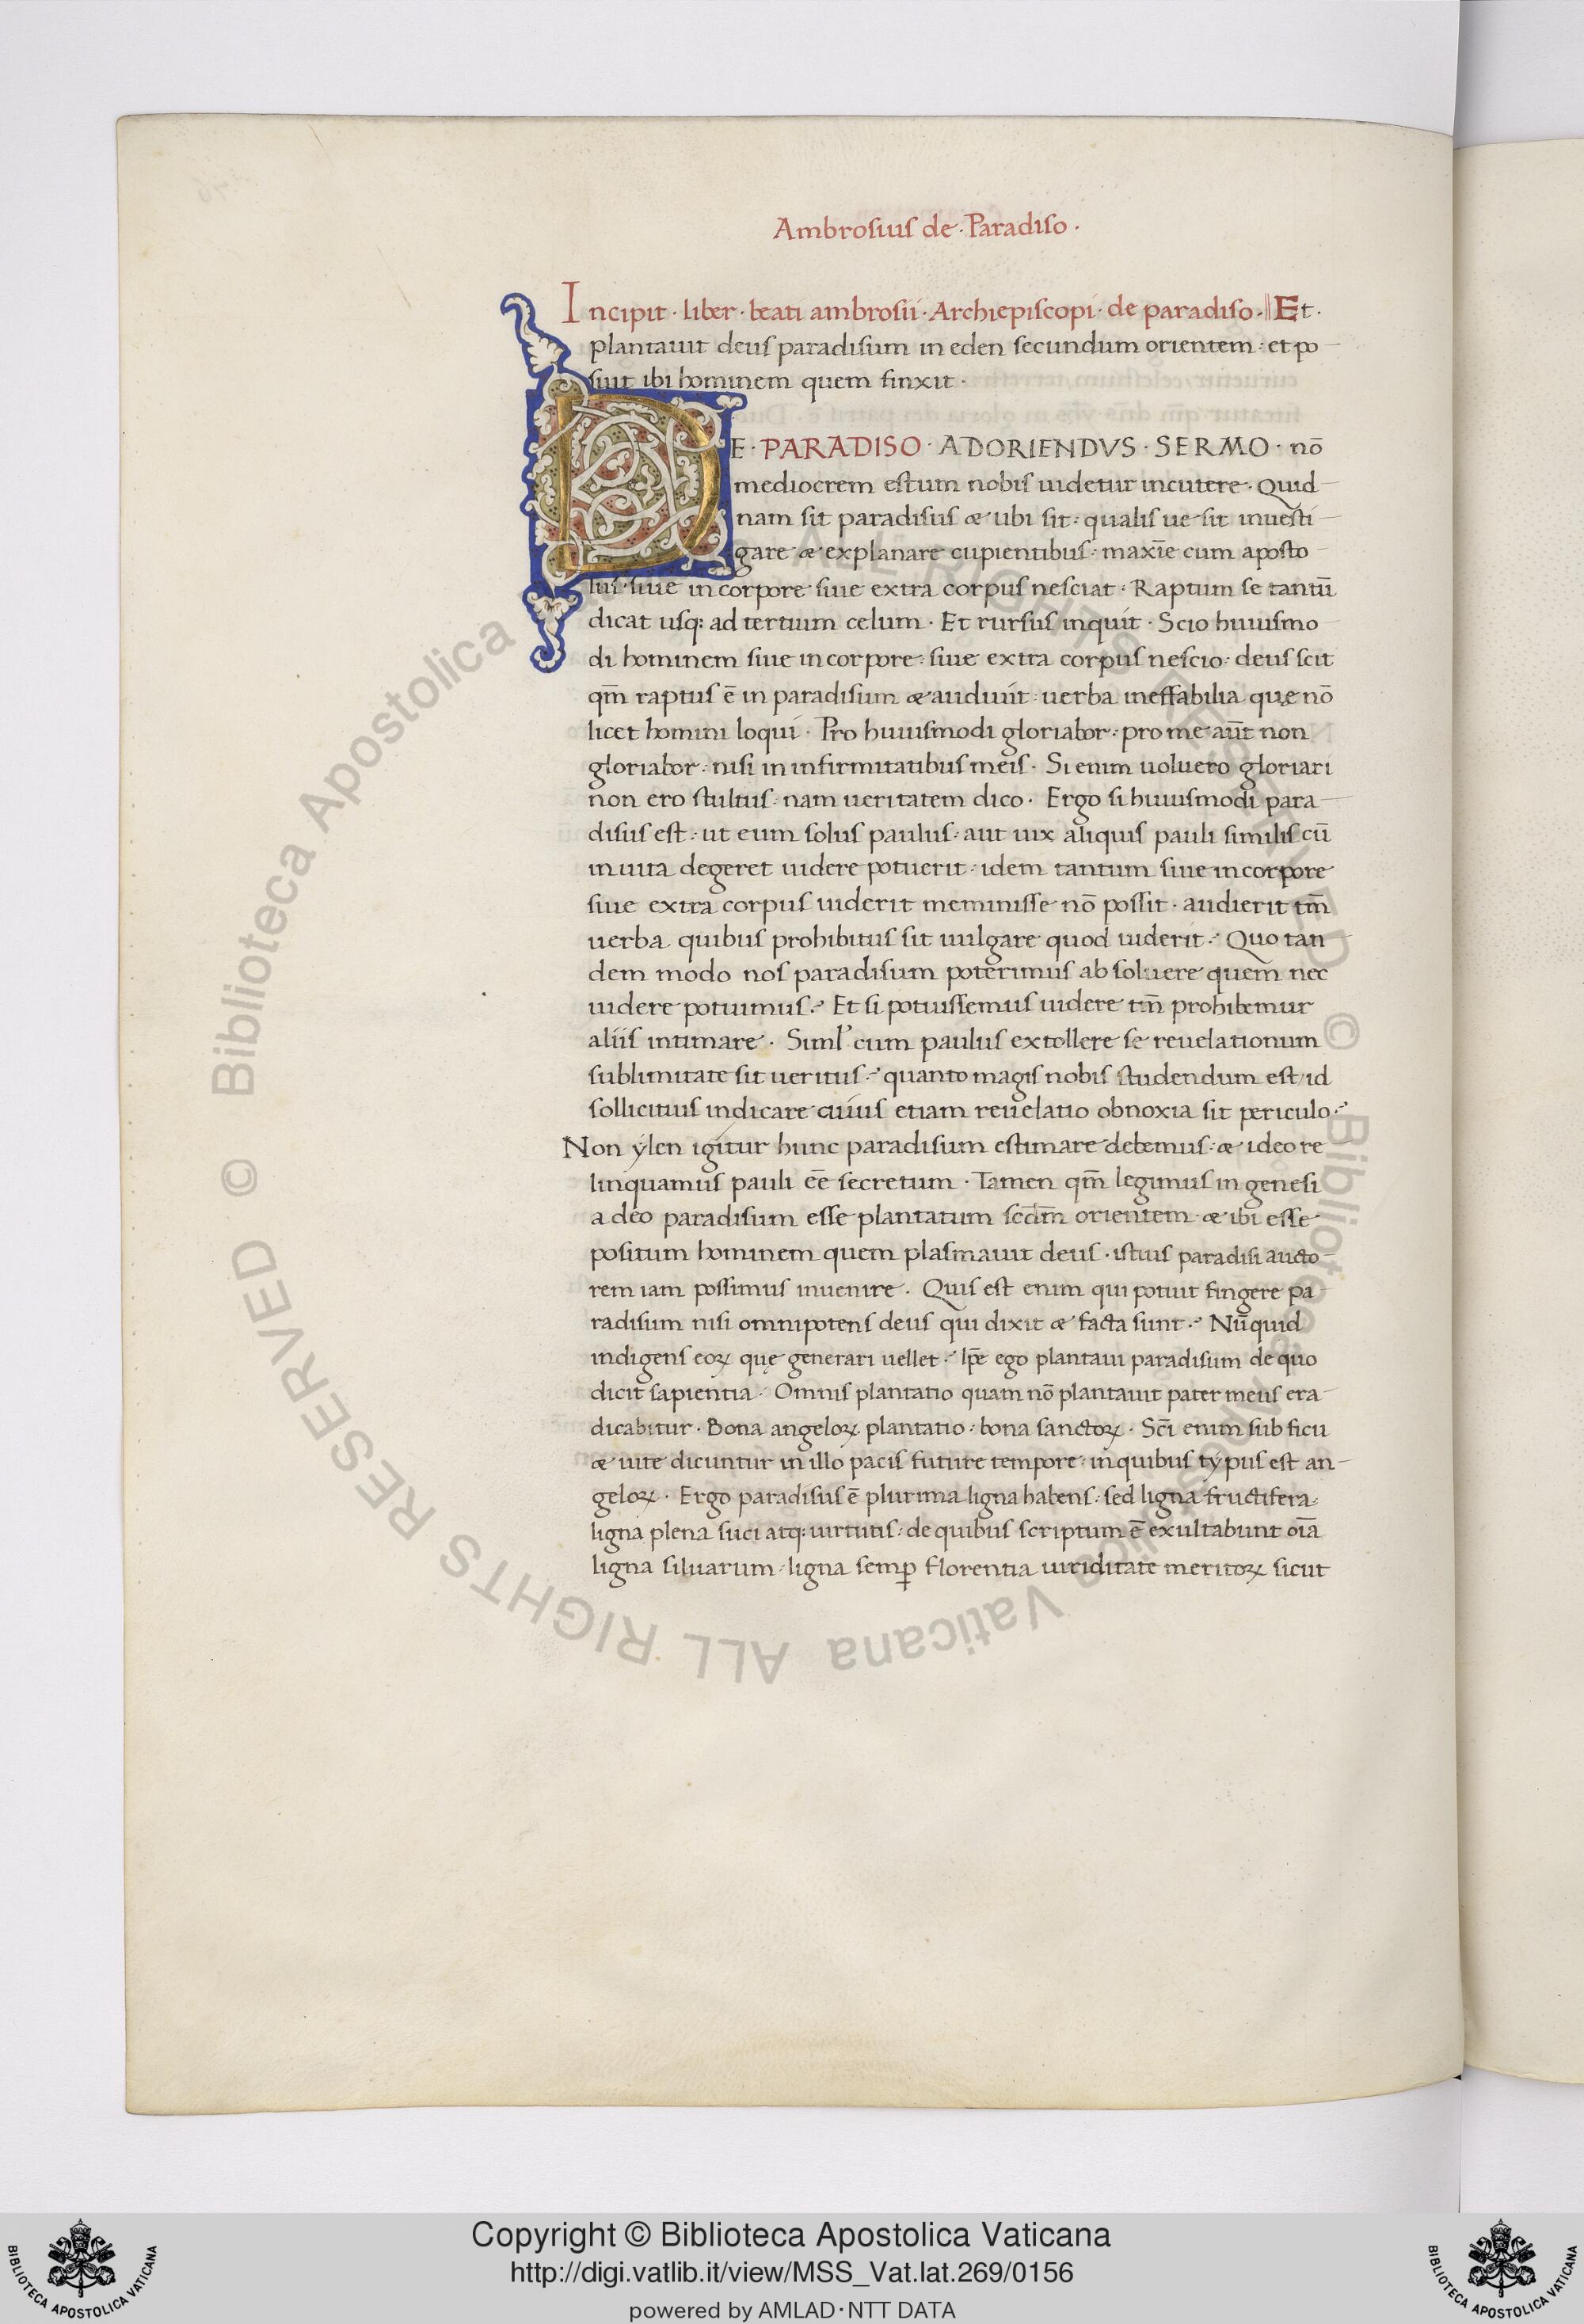 Ambrosius de · Paradiso ·
Incipit · liber · beati ambrosii · Archiepiscopi · de paradiso · Et ·
plantauit deus paradisum in eden secundum orientem : et po
suit ibi hominem quem finxit ·
DE · PARADISO · ADORIENDVS · SERMO · nō
mediocrem estum nobis uidetur incutere · Quid
nam sit paradisus & ubi sit : qualis ue sit inuesti
gare & explanare cupientibus : maxīe cum aposto
lus siue in corpore siue extra corpus nesciat · Raptum se tantū
dicat usq: ad tertium celum · Et rursus inquit · Scio huiusmo
di hominem siue in corpore : siue extra corpus nescio : deus scit
qm̄ raptus ē in paradisum & audiuit : uerba ineffabilia que nō
licet homini loqui · Pro huiusmodi gloriabor : pro me aūt non
gloriabor : nisi in infirmitatibus meis · Si enim uoluero gloriari
non ero stultus : nam ueritatem dico · Ergo si huiusmodi para
disus est : ut eum solus paulus : aut uix aliquis pauli similis cū
in uita degeret uidere potuerit : idem tantum siue in corpore
siue extra corpus uiderit meminisse nō possit · audierit tm̄
uerba quibus prohibitus sit uulgare quod uiderit : Quo tan
dem modo nos paradisum poterimus absoluere quem nec
uidere potuimus : Et si potuissemus uidere tn̄ prohibemur
aliis intimare · Siml' cum paulus extollere se reuelationum
sublimitate sit ueritus : quanto magis nobis studendum est / id
sollicitius indicare cuius etiam reuelatio obnoxia sit periculo :
Non ylen igitur hunc paradisum estimare debemus : & ideo re
linquamus pauli eē secretum · Tamen qm̄ legimus in genesi
a deo paradisum esse plantatum scd̄m orientem & ibi esse
positum hominem quem plasmauit deus · istius paradisi aucto
rem iam possimus inuenire · Quis est enim qui potuit fingere pa
radisum nisi omnipotens deus qui dixit & facta sunt : Nūquid
indigens eoꝝ que generari uellet : Ip̄e ego plantaui paradisum de quo
dicit sapientia · Omnis plantatio quam nō plantauit pater meus era
dicabitur · Bona angeloꝝ plantatio : bona sanctoꝝ · Sc̄i enim sub ficu
& uite dicuntur in illo pacis future tempore : in quibus typus est an
geloꝝ · Ergo paradisus ē plurima ligna habens : sed ligna fructifera :
ligna plena suci atq: uirtutis : de quibus scriptum ē exultabunt oīa
ligna siluarum : ligna semꝑ florentia uiriditate meritoꝝ sicut
© Biblioteca Apostolica Vaticana ALL RIGHTS RESERVED © Biblioteca Apostolica Vaticana ALL RIGHTS RESERVED
BIBLIOTECA APOSTOLICA VATICANA
Copyright © Biblioteca Apostolica Vaticana
http://digi.vatlib.it/view/MSS_Vat.lat.269/0156
powered by AMLAD · NTT DATA
BIBLIOTECA APOSTOLICA VATICANA